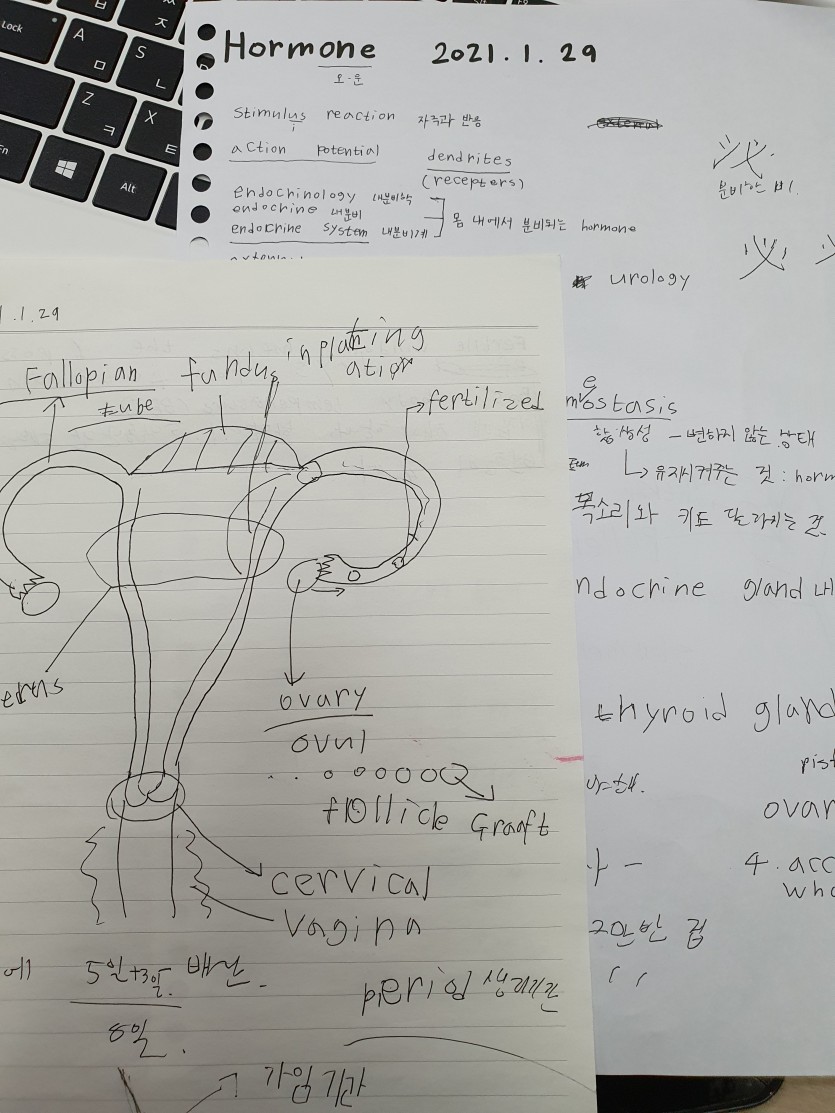 Lock
A
ㅁ
S
ㄴ
ㅂ
ㅈ
Z
ㅋ
X
ㅌ
Alt
Hormone 2021.1.29
호·운
stimulus reaction 자극과 반응
action potential
dendrites
(recepters)
endocrinology 내분비학
endocrine 내분비
endocrine system 내분비계
몸 내에서 분비되는 hormone
泌
분비할 비
必
urology
e
mostasis
항상성 - 변하지 않는 상태
유지시켜주는 것: horm
목소리와 키도 달라지는 것
ndocrine gland 내
thyroid gland
pist
ovar
4. acc
who
2만반 겁
.1.29
Fallopian
tube
fundus
inplanting
ation
fertilized
ovary
ovul
follicle Graaft
cervical
vagina
에 5일+3일. 배난.
8일.
period 생리기간
가임기간